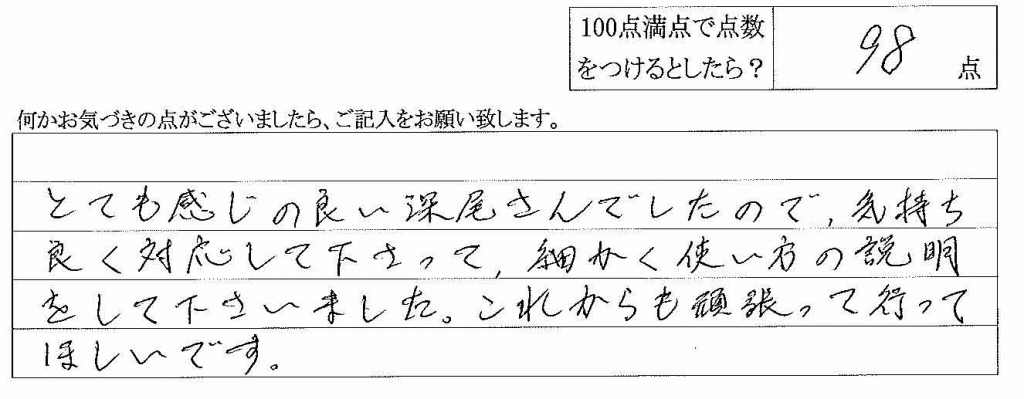 100点満点で点数
をつけるとしたら？
98 点
何かお気づきの点がございましたら、ご記入をお願い致します。
とても感じの良い深尾さんでしたので、気持ち
良く対応して下さって、細かく使い方の説明
をして下さいました。これからも頑張って行って
ほしいです。